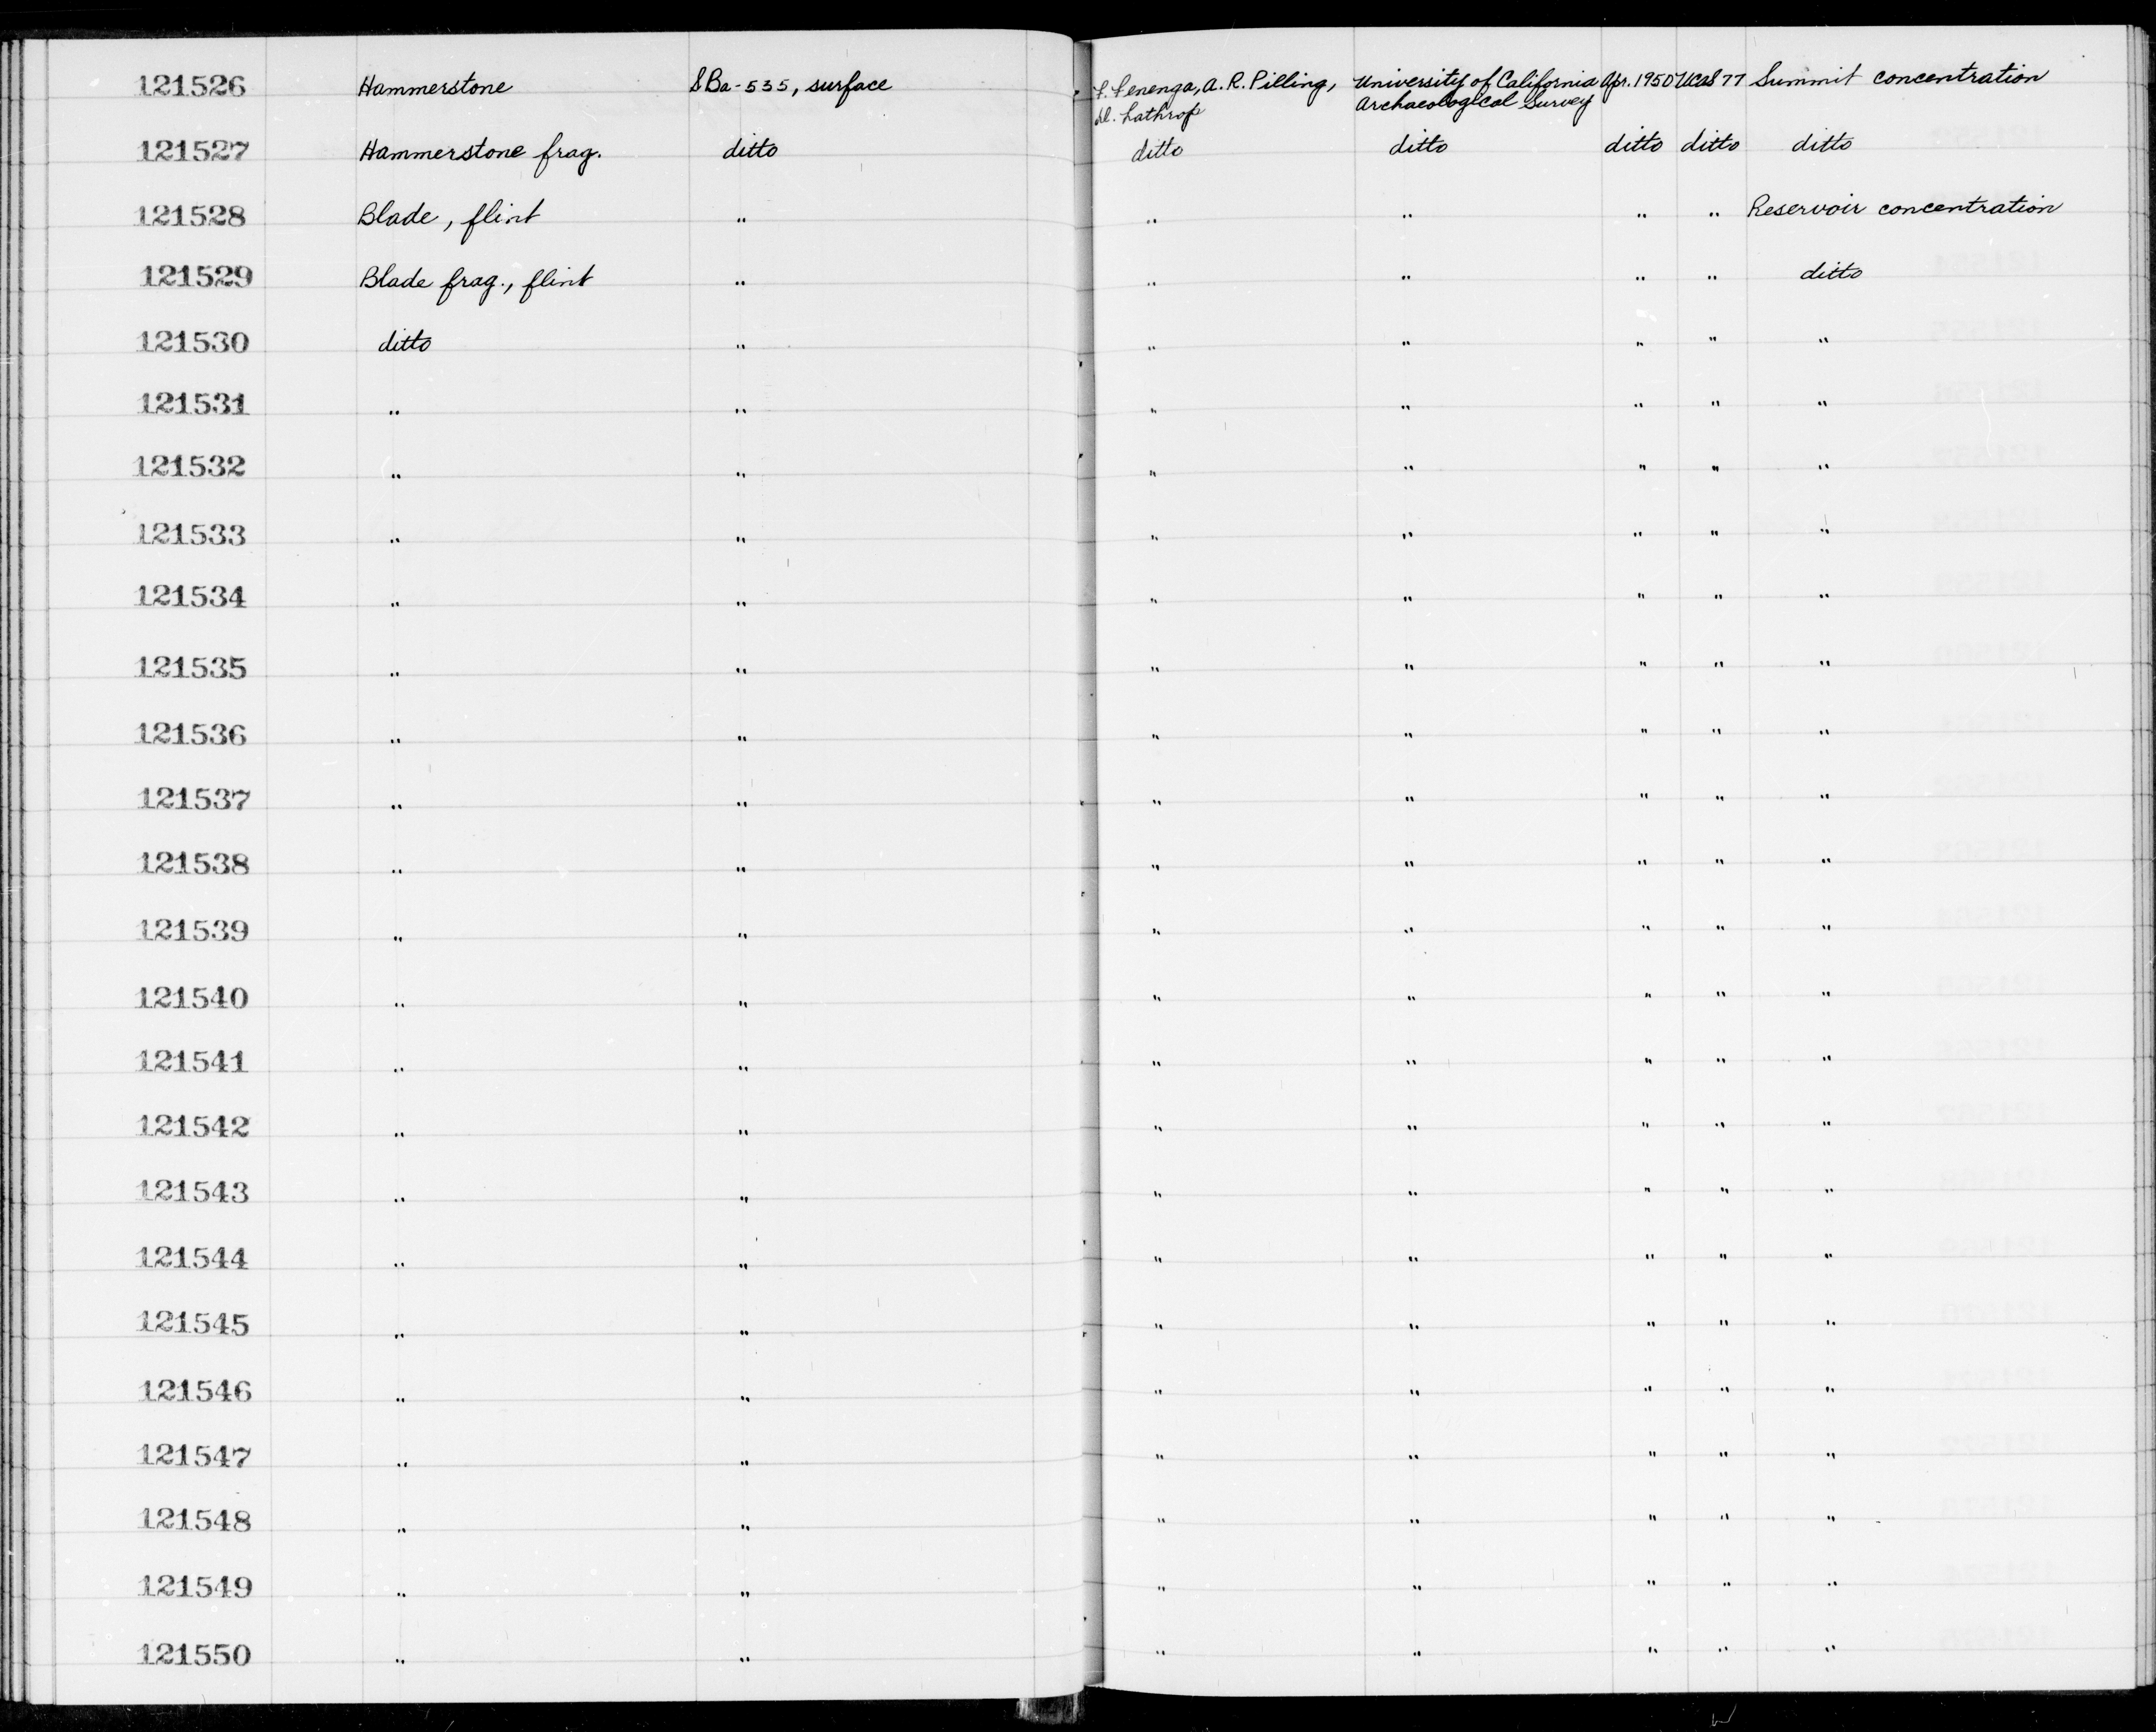 121526 Hammerstone SBa-535, surface F. Fenenga, A. R. Pilling, University of California Apr. 1950 UCAS 77 Summit concentration
Lathrop Archaeological Survey
121527 Hammerstone frag. ditto ditto ditto ditto ditto ditto
121528 Blade, flint " " " " " Reservoir concentration
121529 Blade frag., flint " " " " " ditto
121530 ditto " " " " " "
121531 " " " " " " "
121532 " " " " " " "
121533 " " " " " " "
121534 " " " " " " "
121535 " " " " " " "
121536 " " " " " " "
121537 " " " " " " "
121538 " " " " " " "
121539 " " " " " " "
121540 " " " " " " "
121541 " " " " " " "
121542 " " " " " " "
121543 " " " " " " "
121544 " " " " " " "
121545 " " " " " " "
121546 " " " " " " "
121547 " " " " " " "
121548 " " " " " " "
121549 " " " " " " "
121550 " " " " " " "